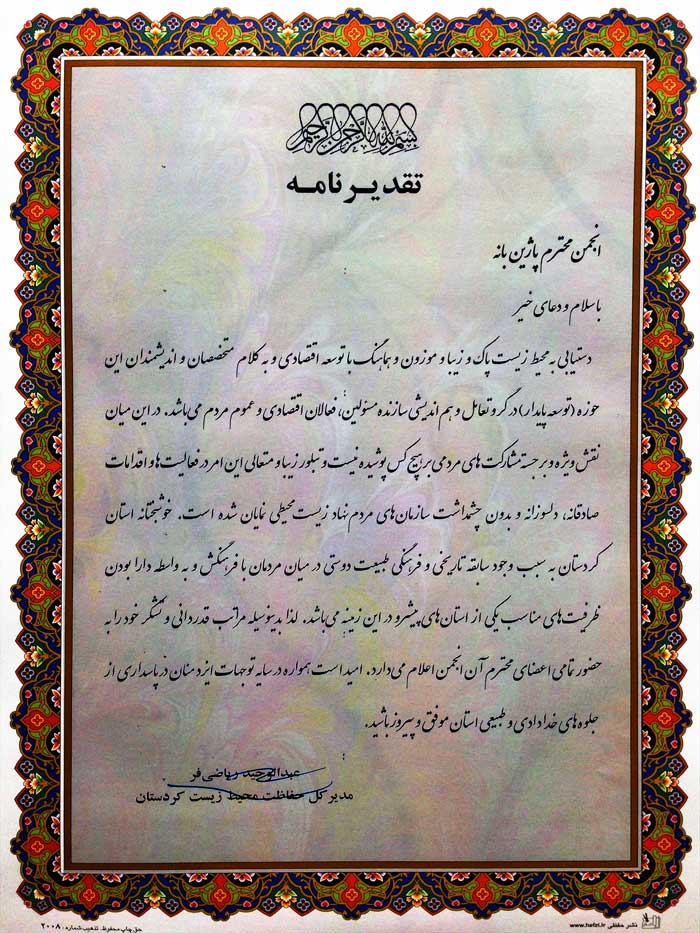 بسم الله الرحمن الرحیم
تقدیرنامه
انجمن محترم پاژین بانه
با سلام و دعای خیر
دستیابی به محیط زیست پاک و زیبا و موزون و هماهنگ با توسعه اقتصادی و به کلام متخصصان و اندیشمندان این
حوزه (توسعه پایدار) در گرو تعامل و هم اندیشی سازنده مسئولین، فعالان اقتصادی و عموم مردم می‌باشد. در این میان
نقش ویژه و برجسته مشارکت های مردمی بر هیچ کس پوشیده نیست و تبلور زیبا و متعالی این امر در فعالیت ها و اقدامات
صادقانه، دلسوزانه و بدون چشمداشت سازمان‌های مردم نهاد زیست محیطی نمایان شده است. خوشبختانه استان
کردستان به سبب وجود سابقه تاریخی و فرهنگی طبیعت دوستی در میان مردمان با فرهنگش و به واسطه دارا بودن
ظرفیت‌های مناسب یکی از استان های پیشرو در این زمینه می‌باشد. لذا بدینوسیله مراتب قدردانی و تشکر خود را به
حضور تمامی اعضای محترم آن انجمن اعلام می‌دارد. امید است همواره در سایه توجهات ایزد منان در پاسداری از
جلوه های خدادادی و طبیعی استان موفق و پیروز باشید.
عبدالوحید ریاضی‌فر
مدیر کل حفاظت محیط زیست کردستان
نشر حفظی www.hefzi.ir
حق چاپ محفوظ. تذهیب شماره: ۲۰۰۸